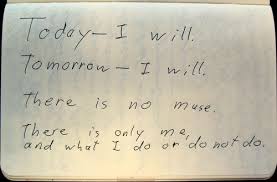 Today - I will.
Tomorrow - I will.
There is no muse.
There is only me,
and what I do or do not do.